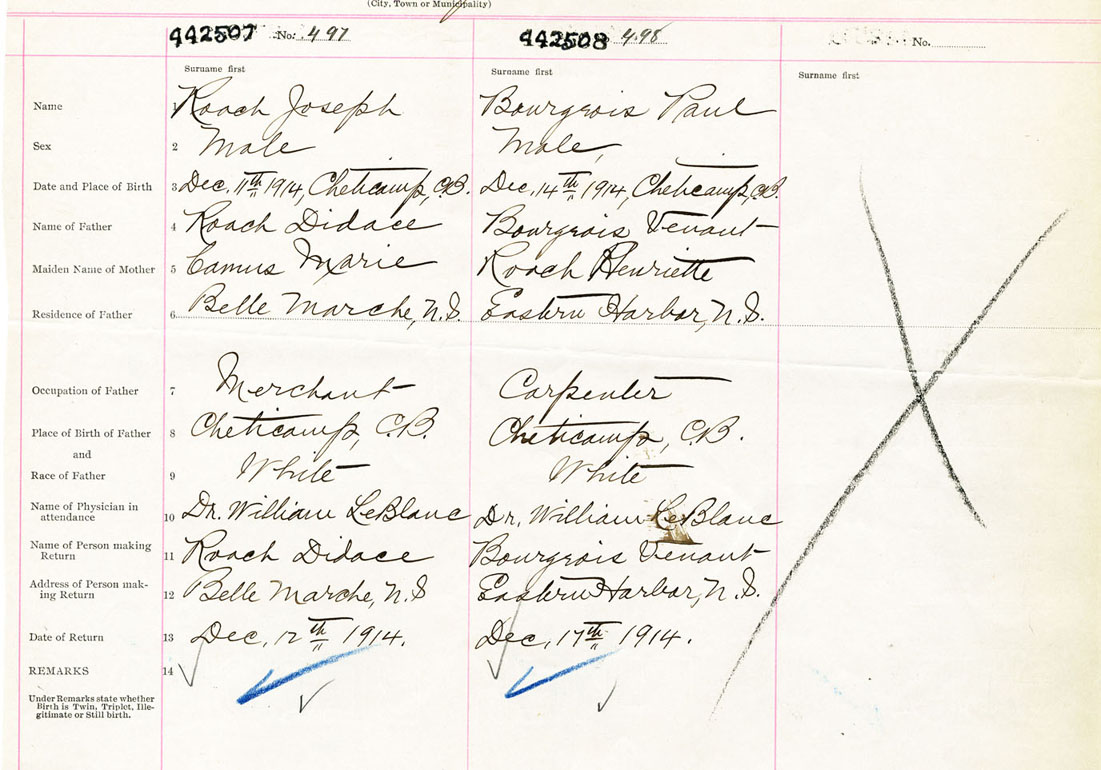 (City, Town or Municipality)
442507 No. 497 442508 498 No.
Surname first Surname first Surname first
Name 1 Roach Joseph Bourgeois Paul
Sex 2 Male Male,
Date and Place of Birth 3 Dec. 11th 1914, Cheticamp, C.B. Dec. 14th 1914, Cheticamp, C.B.
Name of Father 4 Roach Didace Bourgeois Venant
Maiden Name of Mother 5 Camus Marie Roach Henriette
Residence of Father 6 Belle Marche, N.S. Eastern Harbor, N.S.
Occupation of Father 7 Merchant Carpenter
Place of Birth of Father 8 Cheticamp, C.B. Cheticamp, C.B.
and
Race of Father 9 White White
Name of Physician in
attendance 10 Dr. William LeBlanc Dr. William LeBlanc
Name of Person making
Return 11 Roach Didace Bourgeois Venant
Address of Person mak-
ing Return 12 Belle Marche, N.S Eastern Harbor, N.S.
Date of Return 13 Dec. 12th 1914. Dec. 17th 1914.
REMARKS 14
Under Remarks state whether
Birth is Twin, Triplet, Ille-
gitimate or Still birth.